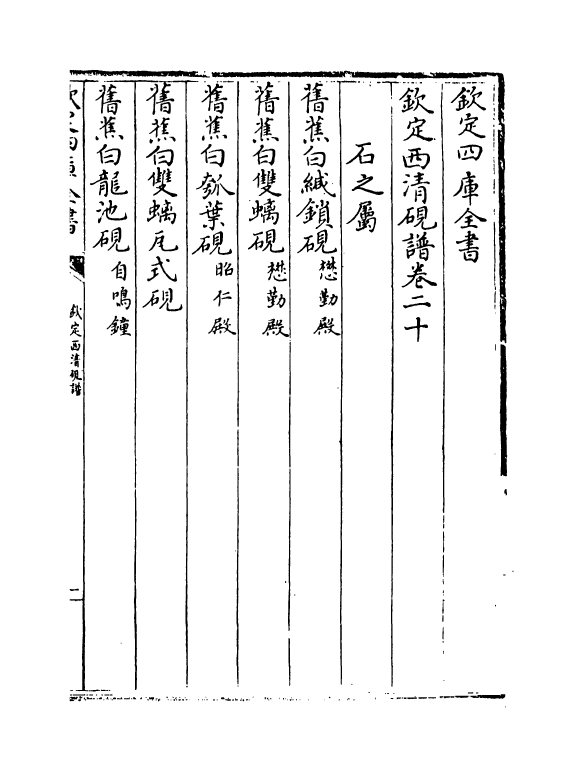 欽定四庫全書
欽定西清硯譜卷二十
石之屬
舊蕉白緘鎖硯 懋勤殿
舊蕉白雙螭硯 懋勤殿
舊蕉白瓠葉硯 昭仁殿
舊蕉白雙螭瓦式硯
舊蕉白龍池硯 自鳴鐘
欽定四庫全書
欽定西清硯譜
二